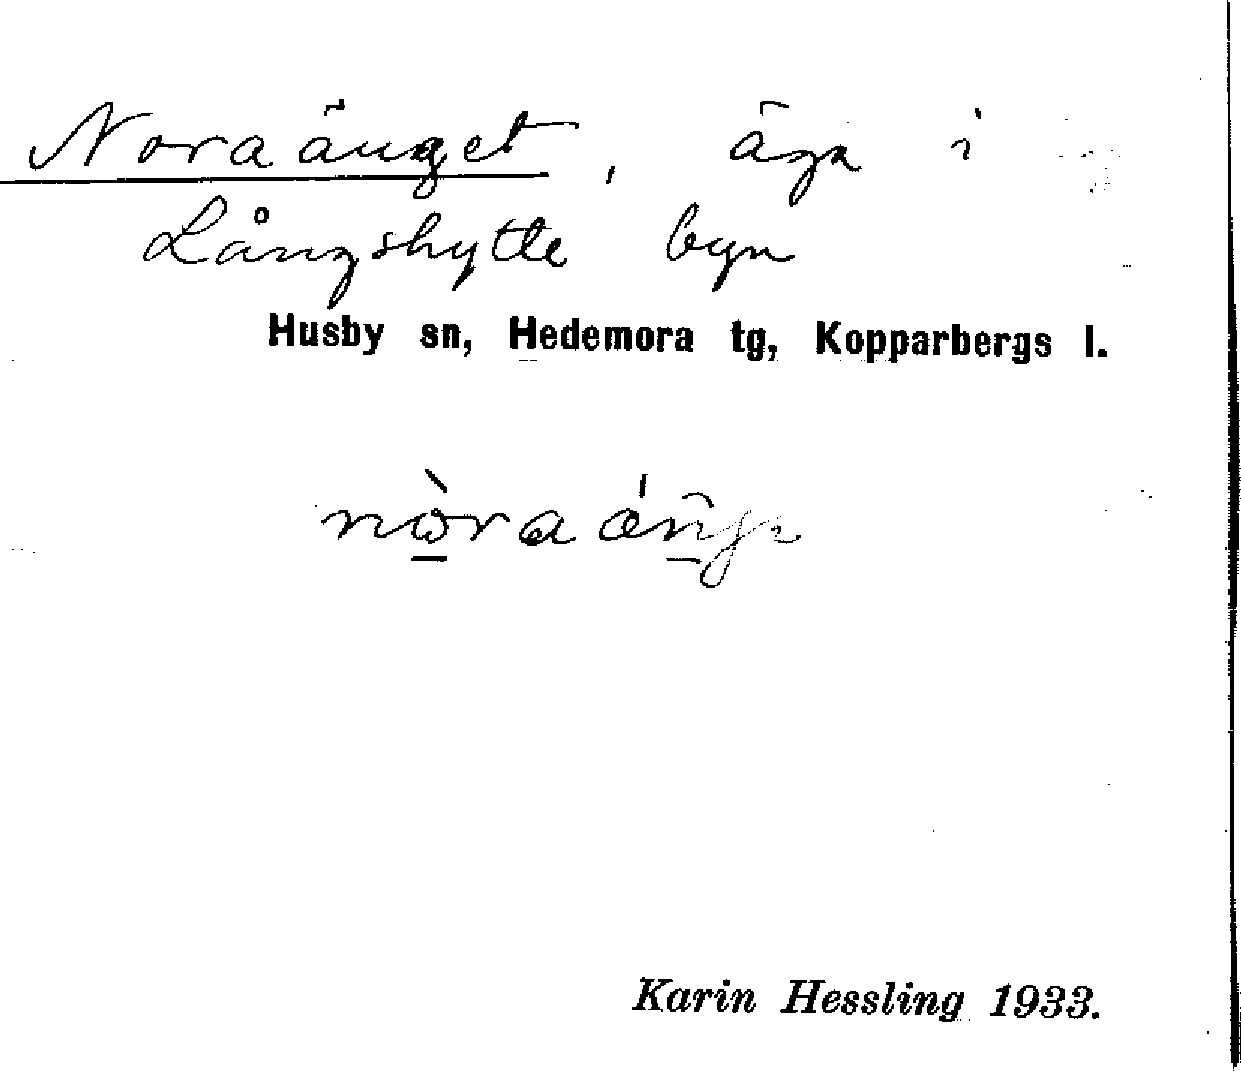 Noraänget, äga i
Långshytte byn
Husby sn, Hedemora tg, Kopparbergs l.
Karin Hessling 1933.